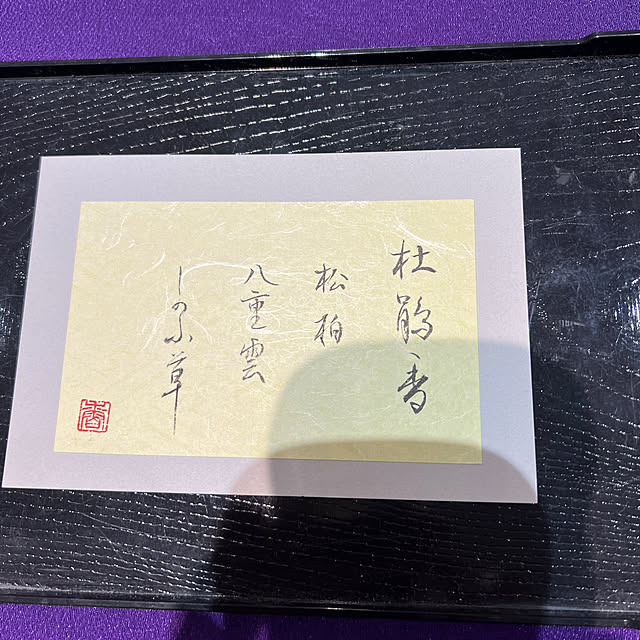 杜鵑香
松柏
八重雲
しのふ草
香